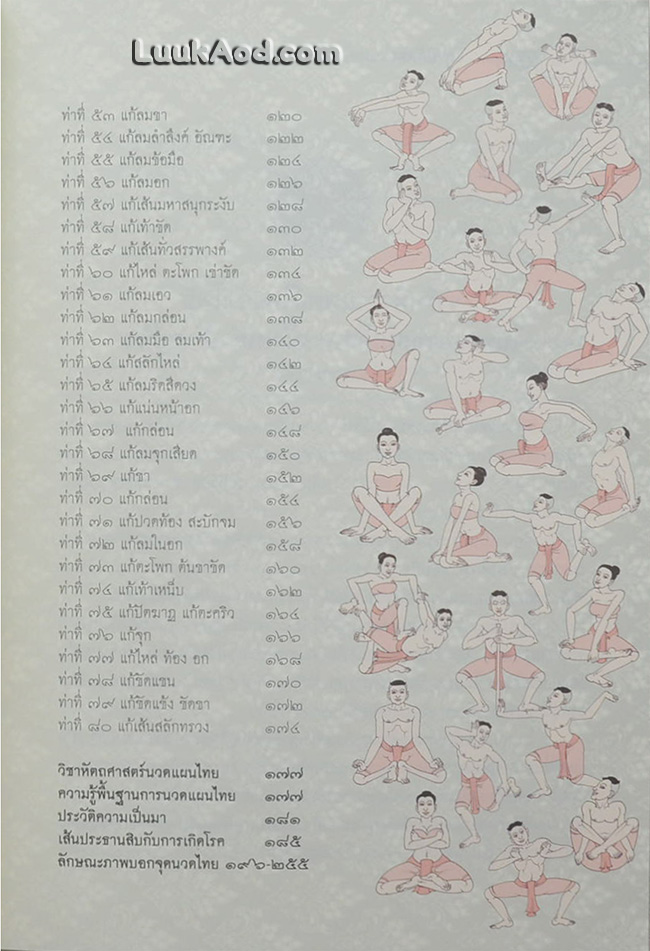 LuukAod.com
ท่าที่ ๕๓ แก้ลมขา ๑๒๐
ท่าที่ ๕๔ แก้ลมลำลึงค์ อัณฑะ ๑๒๒
ท่าที่ ๕๕ แก้ลมข้อมือ ๑๒๔
ท่าที่ ๕๖ แก้ลมอก ๑๒๖
ท่าที่ ๕๗ แก้เส้นมหาสนุกระงับ ๑๒๘
ท่าที่ ๕๘ แก้เท้าขัด ๑๓๐
ท่าที่ ๕๙ แก้เส้นทั่วสรรพางค์ ๑๓๒
ท่าที่ ๖๐ แก้ไหล่ ตะโพก เข่าขัด ๑๓๔
ท่าที่ ๖๑ แก้ลมเอว ๑๓๖
ท่าที่ ๖๒ แก้ลมกล่อน ๑๓๘
ท่าที่ ๖๓ แก้ลมมือ ลมเท้า ๑๔๐
ท่าที่ ๖๔ แก้สลักไหล่ ๑๔๒
ท่าที่ ๖๕ แก้ลมริดสีดวง ๑๔๔
ท่าที่ ๖๖ แก้แน่นหน้าอก ๑๔๖
ท่าที่ ๖๗ แก้กล่อน ๑๔๘
ท่าที่ ๖๘ แก้ลมจุกเสียด ๑๕๐
ท่าที่ ๖๙ แก้ขา ๑๕๒
ท่าที่ ๗๐ แก้กล่อน ๑๕๔
ท่าที่ ๗๑ แก้ปวดท้อง สะบักจม ๑๕๖
ท่าที่ ๗๒ แก้ลมในอก ๑๕๘
ท่าที่ ๗๓ แก้ตะโพก ต้นขาขัด ๑๖๐
ท่าที่ ๗๔ แก้เท้าเหน็บ ๑๖๒
ท่าที่ ๗๕ แก้ปัตฆาฏ แก้ตะคริว ๑๖๔
ท่าที่ ๗๖ แก้จุก ๑๖๖
ท่าที่ ๗๗ แก้ไหล่ ท้อง อก ๑๖๘
ท่าที่ ๗๘ แก้ขัดแขน ๑๗๐
ท่าที่ ๗๙ แก้ขัดแข้ง ขัดขา ๑๗๒
ท่าที่ ๘๐ แก้เส้นสลักทรวง ๑๗๔
วิชาหัตถศาสตร์นวดแผนไทย ๑๗๗
ความรู้พื้นฐานการนวดแผนไทย ๑๗๗
ประวัติความเป็นมา ๑๘๑
เส้นประธานสิบกับการเกิดโรค ๑๘๕
ลักษณะภาพบอกจุดนวดไทย ๑๙๖-๒๕๕